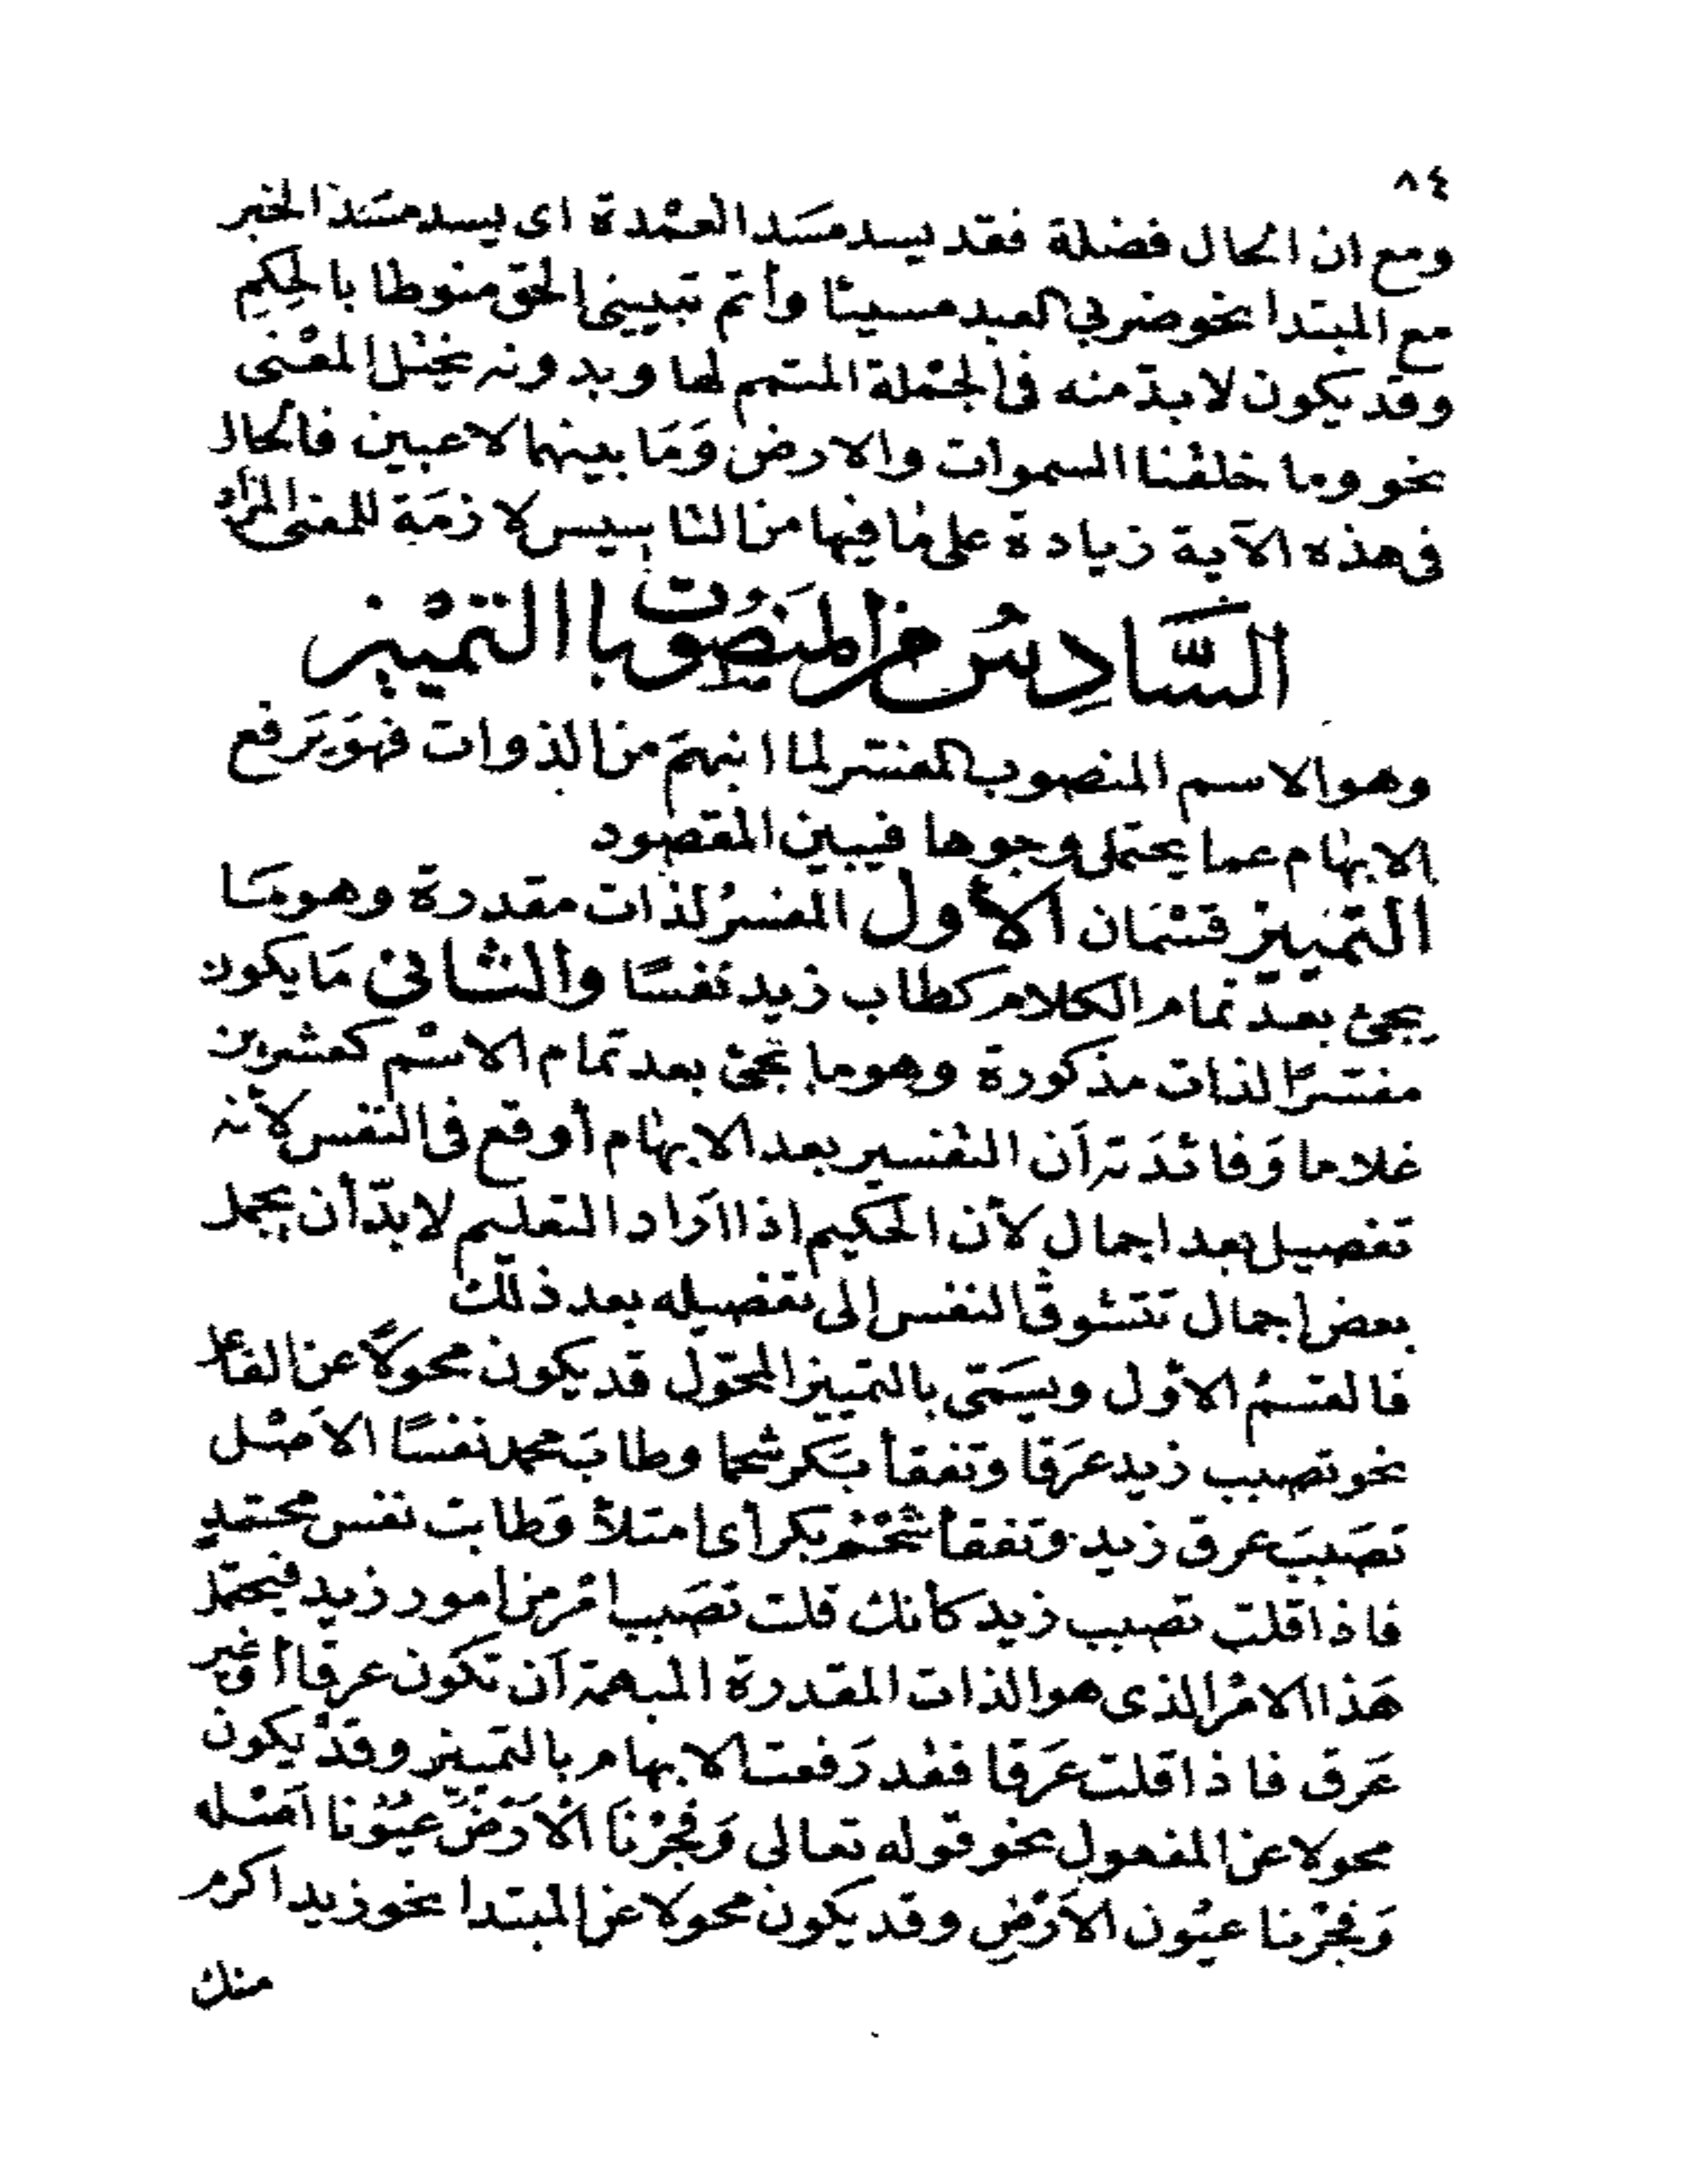 ٨٤
ومع ان الحال فضلة فقد يسد مسَد العمْدة اى يسد مسَد الخبر
مع المبتدا نحو ضربي العبد مسيئا وأتم تبيينى الحق منوطا بالحِكِم
وقد يكون لا بدّ منه فى الجمْلة المتمم لها وبدونه يختل المعْنى
نحو وما خلقنا السموات والارض وَمَا بينهما لاعبين فالحال
فى هذه الآية زيادة على مٰا فيها من التاسيس لازمَة للمعنى المراد
السَّادِسُ من المنصُوبات التمْييز
وهو الاسم المنصوب المفسّر لما انبهمَ من الذوات فهوَ يَرفع
الابهٰام عما يحتمل وجوها فيبين المقصود
التمييز قسْمَان الأول المفسرُ لذات مقدرة وهو مَا
يجئ بعدَ تمام الكلام كطاب زيد نفسًا والثانى مَا يكون
مفسّرًا لذات مذكورة وهو ما يجئ بعد تمام الاسْم كعشرين
غلاما وَفائدَته اَن التفسير بعد الابهٰام أوقع فى النفس لأنه
تفصيل بعد اجمال لأن الحكيم اذا اَراد التعليم لا بدّ أن يجمل
بعض اجمال تتشوق النفس الى تفصيله بعد ذلك
فالقسمُ الاول ويسَمّى بالتمييز المحوّل قد يكون محولاً عن الفاعل
نحو تصبب زيد عرَقا وتفقأ بَكر شحما وطابَ محمد نفسًا الاصْل
تصَببَ عرق زيد وتفقأ شحْم بكر أى امتلأ وَطابت نفس محمّدٍ
فاذا قلت تصبب زيد كأنك قلت تصَبب امْر من امور زيد فيحتمل
هَذا الامْر الذى هو الذات المقدرة المبهمة اَن تكون عرقا أو غير
عَرق فاذا قلت عَرَقا فقد رَفعت الابهام بالتمييز وقدْ يكون
محولا عن المفعول نحو قوله تعالى وَفجّرْنَا الْاَرْضَ عيُوُنا اَصْله
وَفجّرْنا عيُون الاَرْضِ وقد يكون محولا عن المبتدا نحو زيد اكرم
منك